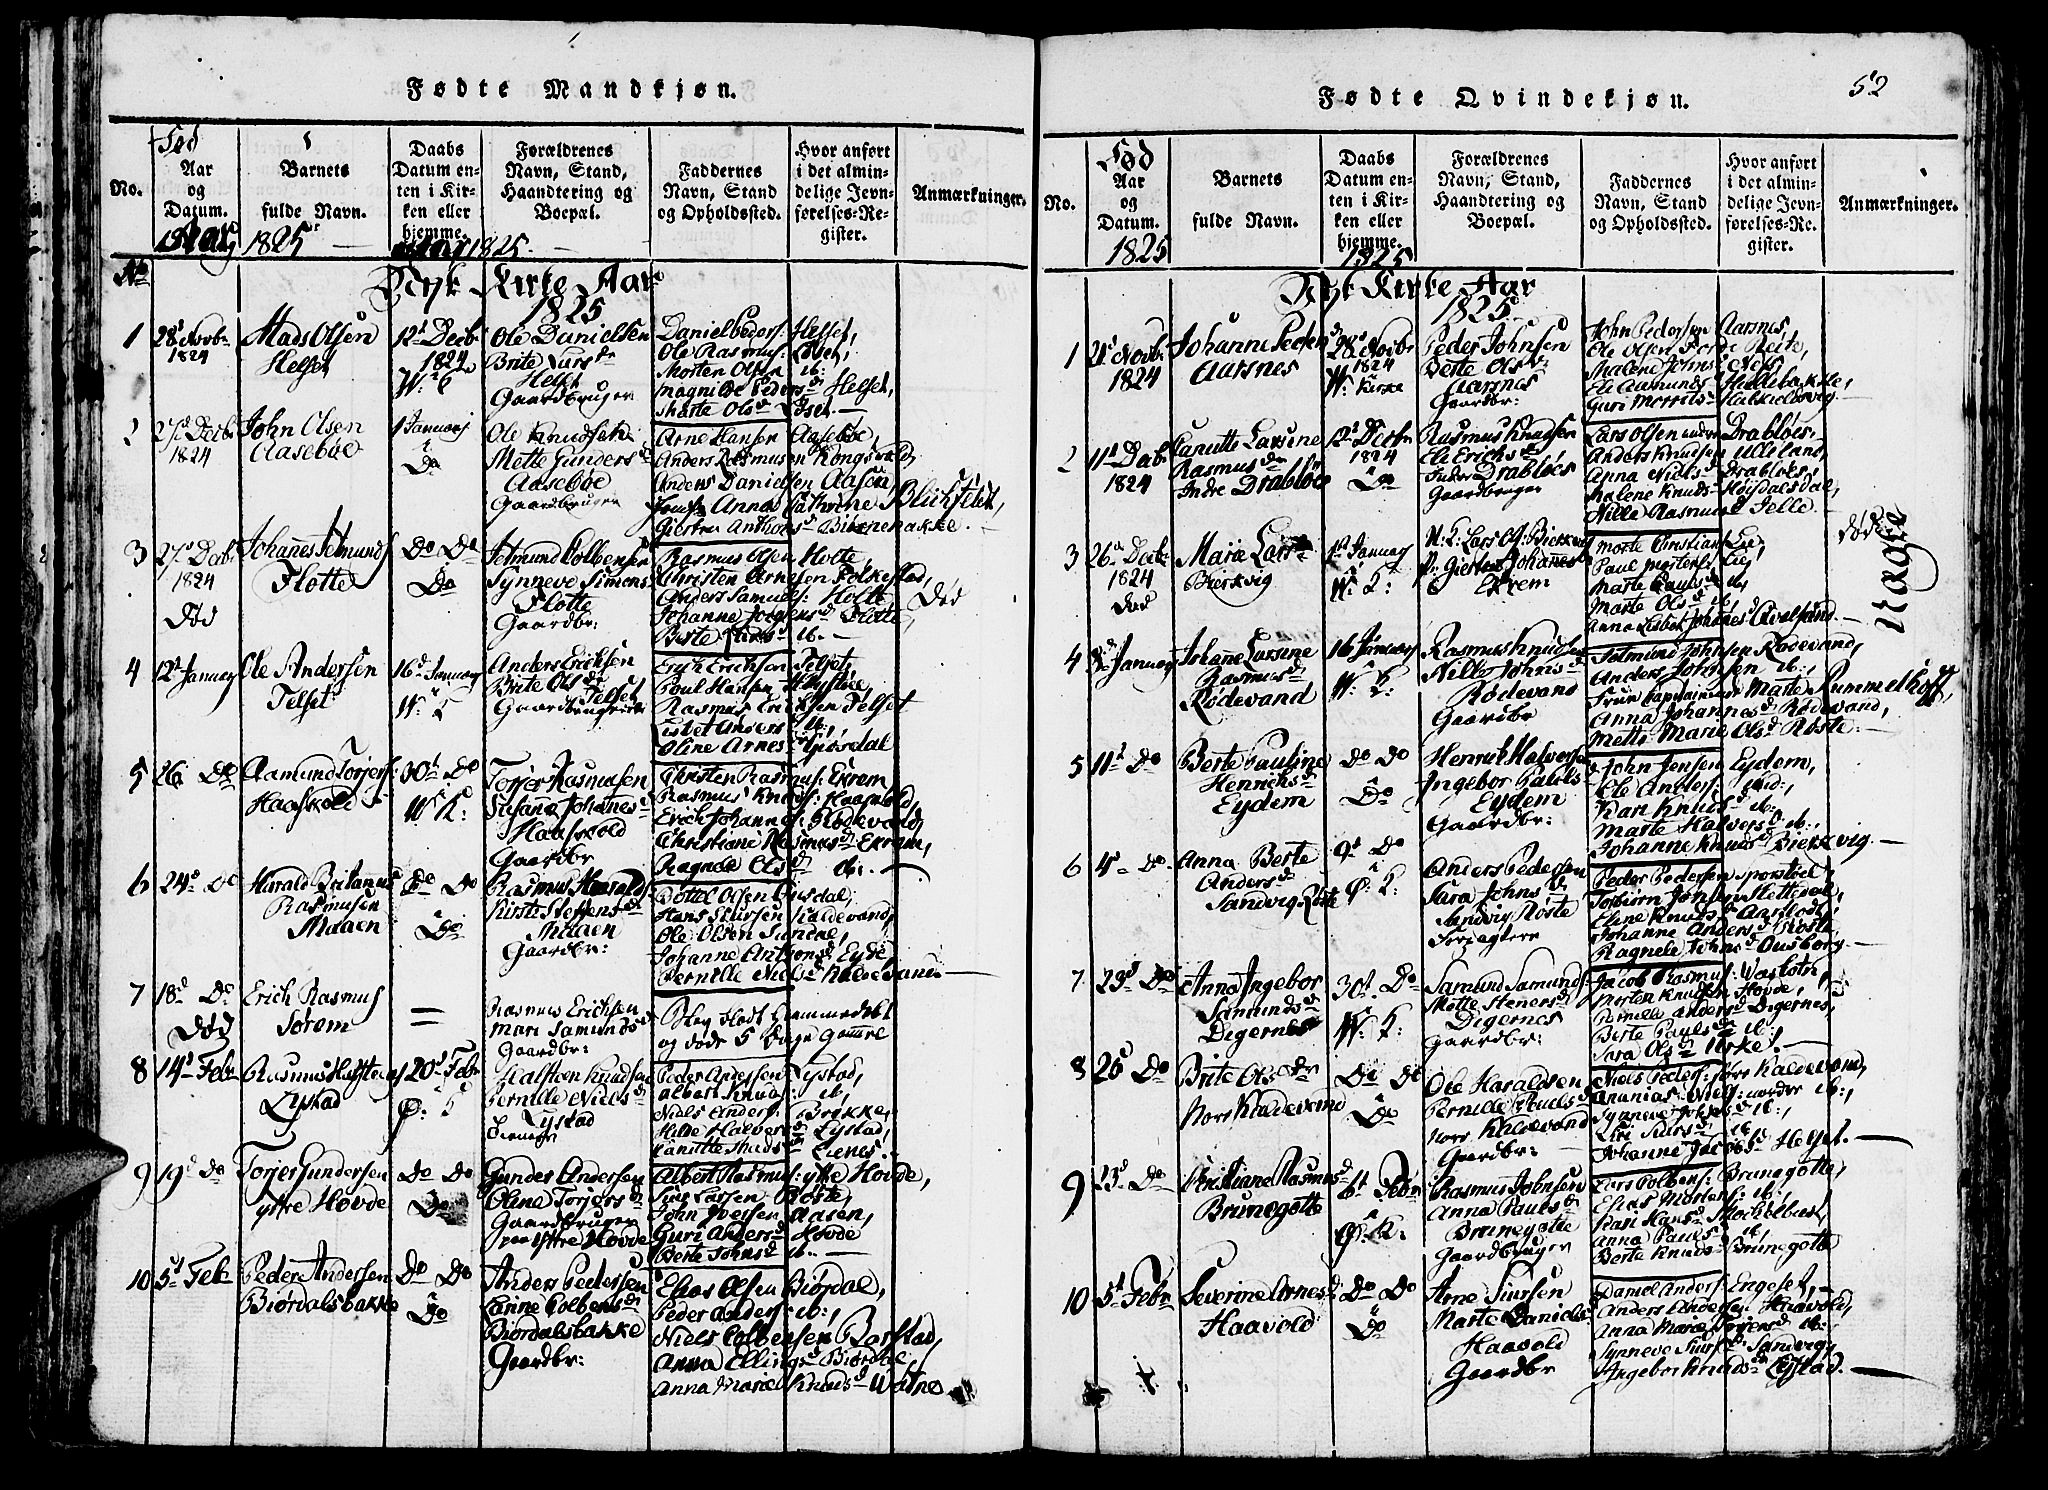 Fødte Mandkjøn.
No.
Fød
Aar
og
Datum.
Barnets
fulde Navn.
Daabs
Datum en-
ten i Kir-
ken eller
hjemme.
Forældrenes
Navn, Stand,
Haandtering og
Boepæl.
Faddernes
Navn, Stand
og Opholdssted.
Hvor anført
i det almin-
delige Jevn-
førelses-Re-
gister.
Anmærkninger.
1825
1825
No
Nyt Kirke Aar
1825
1
28d Novbr
1824
Mads Olsen
Helset
12t Decbr
1824
W: K
Ole Danielsen
Brite Siursdr
Helset
Gaardbruger
Daniel Peders: Helset,
Ole Rasmus: Løset,
Morten Olsen ib:
Magnilde Pedersdr Helset,
Marte Olsd Løset.
2
27d Decbr
1824
John Olsen
Aasebøe
1 Januarj
Do
Ole Knudsen
Mette Gundersd
Aasebøe
Gaardbruger
Arne Hansen Aasebøe,
Anders Rasmusen Kongsvold,
Anders Danielsen Aasen,
Anna Cathrine Blichfeldt
Giertru Anthonsd Birkenebakke.
3
27d Decbr
1824
Død
Johanes Jetmunds
Flotte
Do Do
Do
Jetmund Colbensen
Synneve Simons
Flotte
Gaardbr:
Rasmus Olsen Holte,
Christen Arnesen Folkestad,
Anders Samuels: Holte
Johanne Jorgensd Flotte,
Berte Siursd ib.
Død
4
12d Januarj
Ole Andersen
Telset
16d Januarj
W: K
Anders Ericksen
Brite Olsdr
Telset
Erich Erichsen Telset,
Poul Hansen
Rasmus Erichsen Telset
Lisbet Anders ib:,
Oline Arnes
5
26 Do
Aamund Torjers
Haaskold
30t Do
W: K:
Torjer Rasmusen
Stefana Johanesd
Haaskold
Gaardbr
Christen Rasmus: Ekrem
Rasmus Knuds: Haavold,
Erich Johannes: Rødevand,
Christiane Rasmusd Ekrem,
Ragnele Olsd ib:.
6
24d Do
Harald Britanus
Rasmusen
Maaen
Do Do
Do
Rasmus Haralds
Kirsti Steffensd
Maaen
Gaardbr:
Bottel Olsen
Hans Siursen Kaldevand,
Ole Olsen
Johanne Antonsd Eyde
Pernille Nielsd Kaldevand
7
18d Do
Død
Erich Rasmus
Sørem
=
Rasmus Erichsen
Mari Samundsd
Gaardbr:
Slog Hodt Hiemmedøbt
og døde 5 Dage Gammel
8
14d Febr
Rasmus Halsteens
Lystad
20d Febr
Ø: K
Halsteen Knudsen
Pernille Nielsd
Lystad
Peder Andersen Lystad,
Albert Knuds: ib,
Niels Anders: Brikke,
Hilde Halversd Lystad,
Lanutte Madsd Lienes.
9
19d Do
Torjer Gundersen
Ytre Hovde
Do Do
Do
Gunder Andersen
Oline Torjersd
Gaardbruger
paa Ytre Hovde
Albert Rasmus: ytre Hovde,
Siur Larsen Røste,
John Iversen Aasen,
Guri Andersd Hovde
Berte Johnsd ib.
10
5d Febr
Peder Andersen
Biørdalsbakke
Do Do
Do
Anders Pedersen
Lanne Colbensd
Biørdalsbakke
Gaardbr:
Elias Olsen Biørdal,
Peder Anders: ib:,
Niels Colbensen Barstad,
Anna Ellingsd Biørdal,
Anna Marie Knudsd Watne
Fødte Qvindekjøn.
52
No.
Fød
Aar
og
Datum.
1825
Barnets
fulde Navn.
Daabs
Datum en-
ten i Kir-
ken eller
hjemme.
1825
Forældrenes
Navn, Stand,
Haandtering og
Boepæl.
Faddernes
Navn, Stand
og Opholdssted.
Hvor anført
i det almin-
delige Jevn-
førelses-Re-
gister.
Anmærkninger.
Nyt Kirke Aar
1825
1
21d Novbr
1824
Johanne Peders
Aarsnes
28d Novbr
1824
W: Kirke
Peder Johnsen
Berte Olsd
Aarsnes
Gaardbr:
John Pedersen Aarsnes,
Ole Olsen
Malene Johns
Eli Aamunds Hellebakke,
Guri Morrits
2
11d Decbr
1824
Lanutte Larsine
Rasmusdr
Indre Drabløs
12d Decbr
1824
Do
Rasmus Knudsen
Eli Erichsd
Indre Drabløes
Gaardbruger
Lars Olsen indre Drabløes,
Anders Knudsen Ulleland,
Anna Nielsd Drabløes,
Malene Knuds Høisdalsdal,
Nille Rasmusd Felle.
3
26d Decbr
1824
Død
Maria Larsdr
Bierkvig
1st Januarj
W: K:
Lars Ols Bierkvig
Giertru Johanesd
Ekrem
Morte Christians Lie,
Paul Mortens Lie,
Marte Paulsd ib,
Marte Olsd ib,
Anna Lisbet Johanesd Qvalsund.
død
Nagee
4
3d Januarj
Johanne Larsine
Rasmusd
Rødevand
16 Januarj
W: K:
Rasmus Knudsen
Nille Johnsd
Rødevand
Gaardbr
Jetmund Johnsen Rødevand,
Anders Johnsen ib:,
Frue Kapitainer Marte Rummelhoff,
Anna Johannesd Rødevand,
Mette Marie Olsd Røste.
5
11d Do
Berte Pauline
Henrichsd
Eydem
Do Do
Do
Henrik Halversen
Ingebor Pauls
Eydem
Gaardbr:
John Jensen Eydem,
Ole Anders: ibid:,
Kari Knudsd ib.
Marte Halversd ib:,
Johanne Knudsd Bierkvig.
6
4d Do
Anna Berte
Andersd
Sandvig Røste
9d Do
Ø: K:
Anders Pedersen
Sara Johnsd
Sandvig Røste
Peder Pedersen
Torbiørn Jonsen
Eline Knudsd Aarflodt,
Johanne Andersd Røste
Ragnele Johnsd Ausborg
7
29d Do
Anna Ingebor
Samundsd
Digernes
30t Do
W: K:
Samund Samunds
Mette Stenersd
Digernes
Gaardbr:
Jacob Rasmus:
Morten Knudsen Hovde,
Pernille Andersd Digernes,
Berte Paulsdr ib:,
Sara Olsd Urke.
8
26d Do
Brite Olsdr
Nors Kaldevand
Do Do
Do
Ole Haraldsen
Pernille Paulsd
Nors Kaldevand
Gaardbr:
Niels Peders: Nors Kaldevand,
Ananias Niels: ib,
Synneve Johnsd ib:,
Siri Siursd ib
Johanne Jacobsd Helset.
9
23d Do
Christiane Rasmusd
Brunegotte
6t Febr
Ø: K:
Rasmus Johnsen
Anna Paulsd
Brunegotte
Gaardbruger
Lars Colbens: Brunegotte,
Elias Mortens: ib:,
Kari Hansd Mochelbust,
Anna Paulsd ib,
Berte Knudsd Brunegotte
10
5d Febr
Severine Arnesd
Haavold
Do Do
Do
Arne Siursen
Marte Daniels
Haavold
Gaardbr
Daniel Anders: Engeset,
Anders Andersen Haavold,
Anna Marie Torjersd ib:
Synneve Siursd Sandvig,
Ingebor Knudsd Lystad.